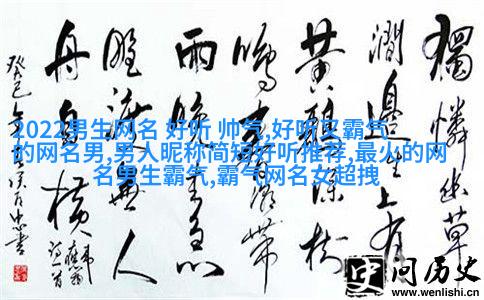 獨憐幽草
澗邊生上有
黃鸝深樹
鳴春潮帶
雨晚来急
野渡無人
舟自橫
2022男生网名 好听 帅气,好听又霸气
的网名男,男人昵称简短好听推荐,最火的网
名男生霸气,霸气网名女超拽
问历史
www.wenlishi.cn